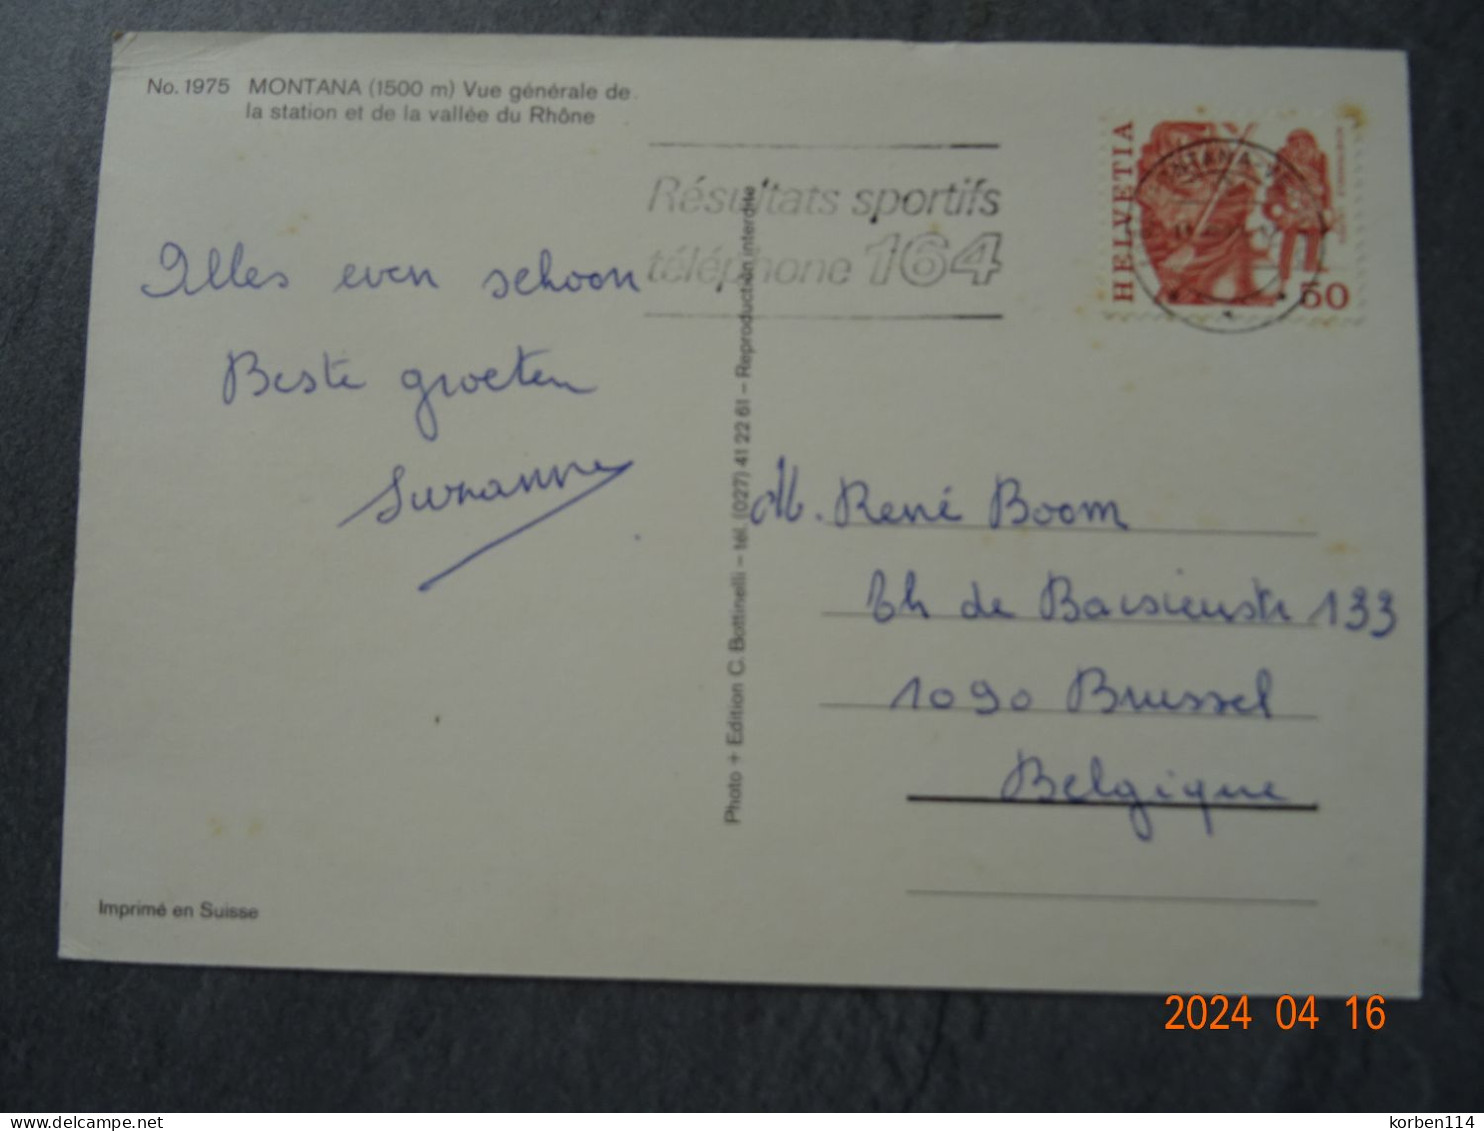 No. 1975 MONTANA (1500 m) Vue générale de
la station et de la vallée du Rhône
Résultats sportifs
téléphone 164
HELVETIA
50
Alles even schoon
Beste groeten
Suzanne
Photo + Edition C. Bottinelli – tél. (027) 41 22 61 – Reproduction interdite
M. René Boom
de 133
1090 Brussel
Belgique
Imprimé en Suisse
2024 04 16
delcampe.net
korben114